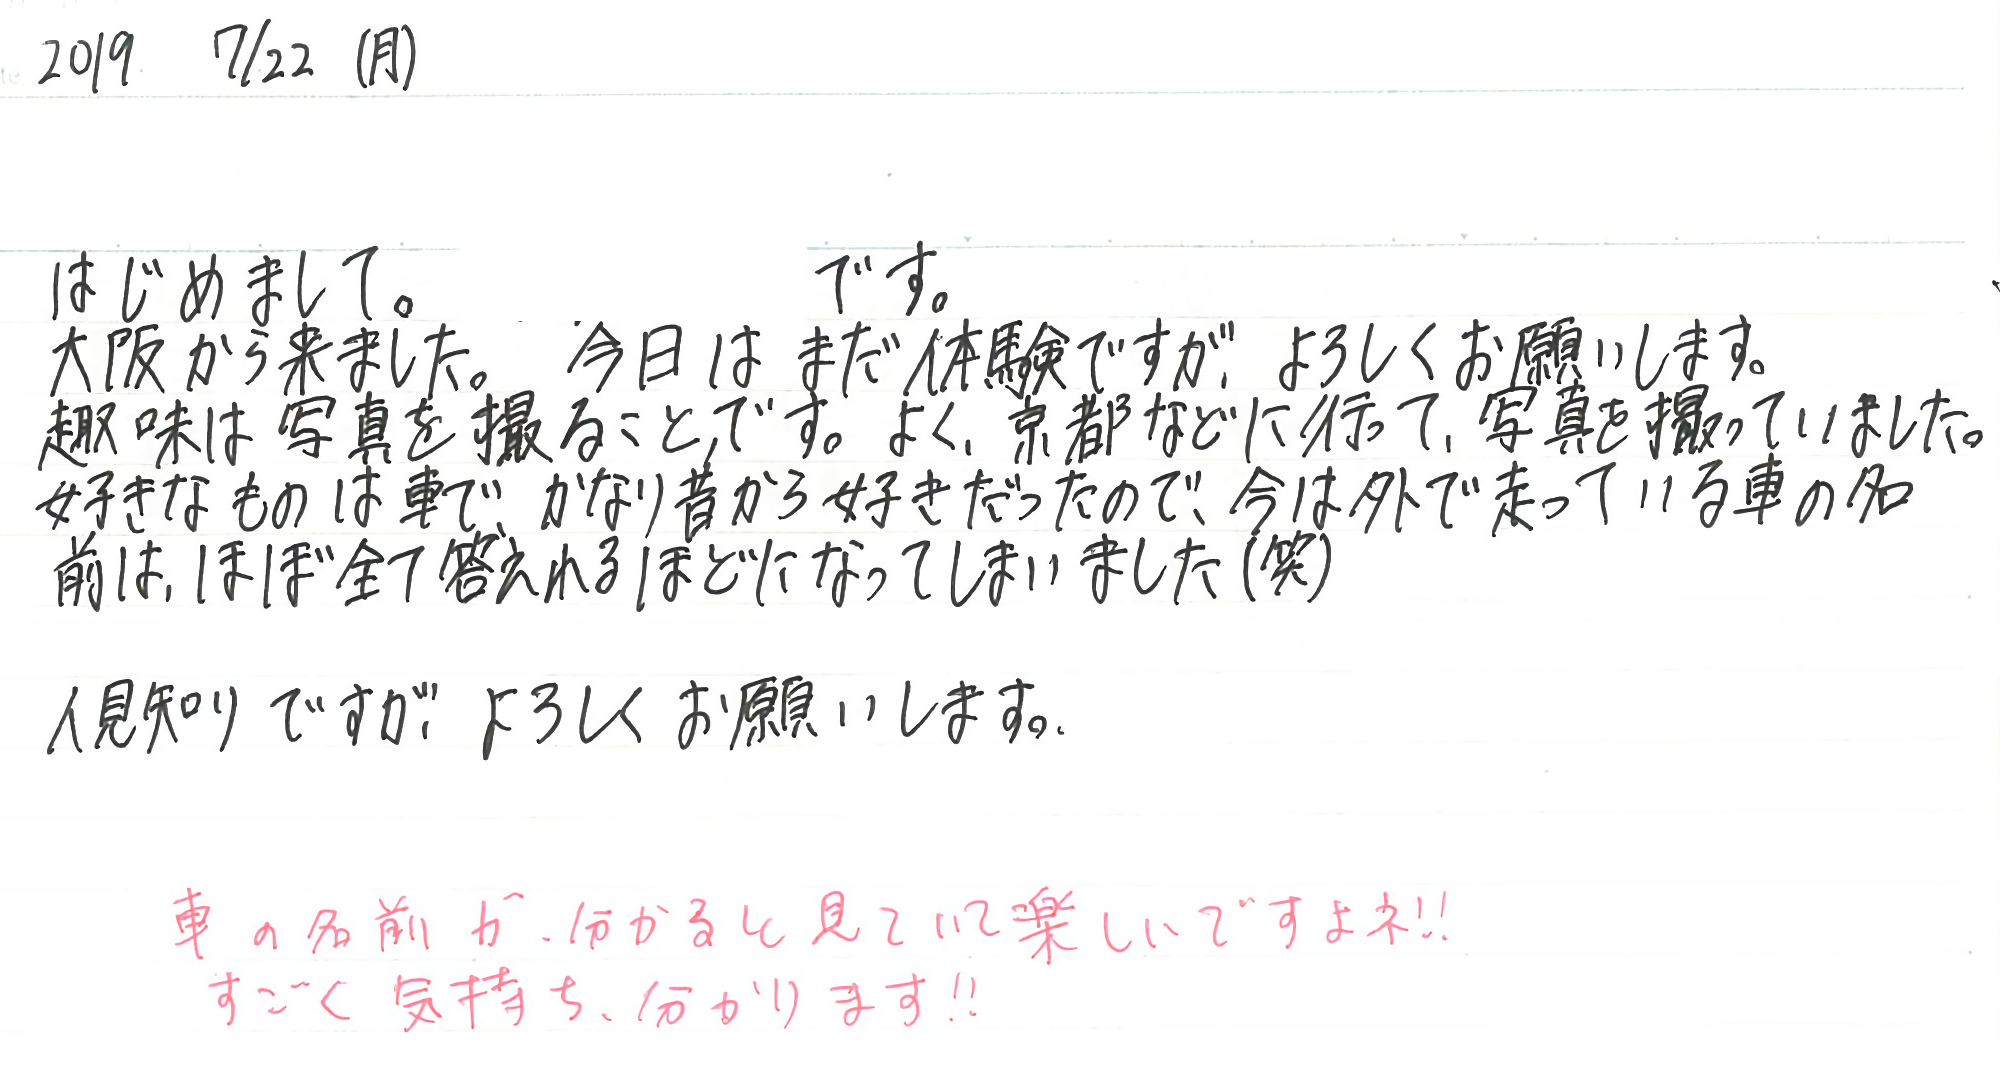 2019 7/22 (月)
はじめまして。 です。
大阪から来ました。 今日はまだ体験ですが、よろしくお願いします。
趣味は写真を撮ることです。よく、京都などに行って、写真を撮っていました。
好きなものは車で、かなり昔から好きだったので、今は外で走っている車の名
前は、ほぼ全て答えれるほどになってしまいました(笑)
人見知りですが、よろしくお願いします。
車の名前が、分かると見ていて楽しいですよネ!!
すごく気持ち、分かります!!